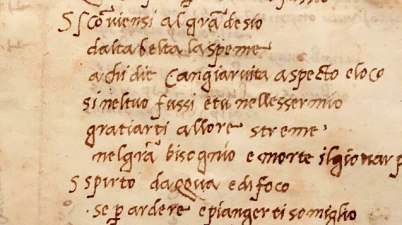 S scōviensi al grā desio
dalta belta la speme
a chi die cangiar vita aspecto e loco
si nel tuo fussi e tu nell esser mio
gratiarti allore streme
nel grā bisognio e morte il gionar p
S spirto dacqua e di foco
se p ardere e pianger ti somiglio